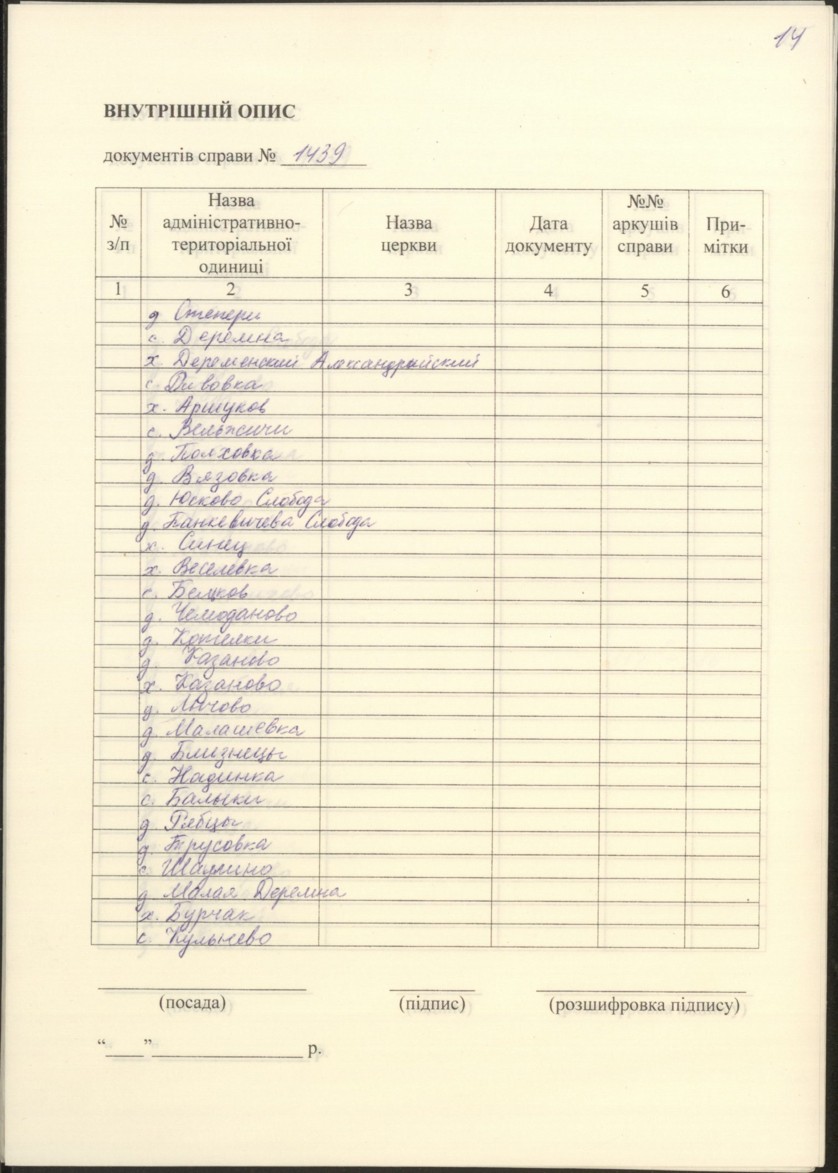 14
ВНУТРІШНІЙ ОПИС
документів справи № 1439
№ з/п
Назва адміністративно-територіальної одиниці
Назва церкви
Дата документу
№№ аркушів справи
При-мітки
1 2 3 4 5 6
д Степери
с. Деремна
х Деременский Александрийский
с Пивовка
х. Аршуков
с. Вельжичи
д. Полховка
д. Вязовка
д. Юсково Слобода
д Банкевичева Слобода
х. Синец
х Веселевка
с. Белков
д. Чемоданово
д. Котелки
д. Казаново
х. Казаново
д. Лычово
д. Малашевка
д. Близнецы
с. Надинка
с. Балыки
д Рябцы
д Трусовка
с Шамино
д Малая Деремна
х. Бурчак
с. Кульнево
(посада) (підпис) (розшифровка підпису)
“____”________________ р.